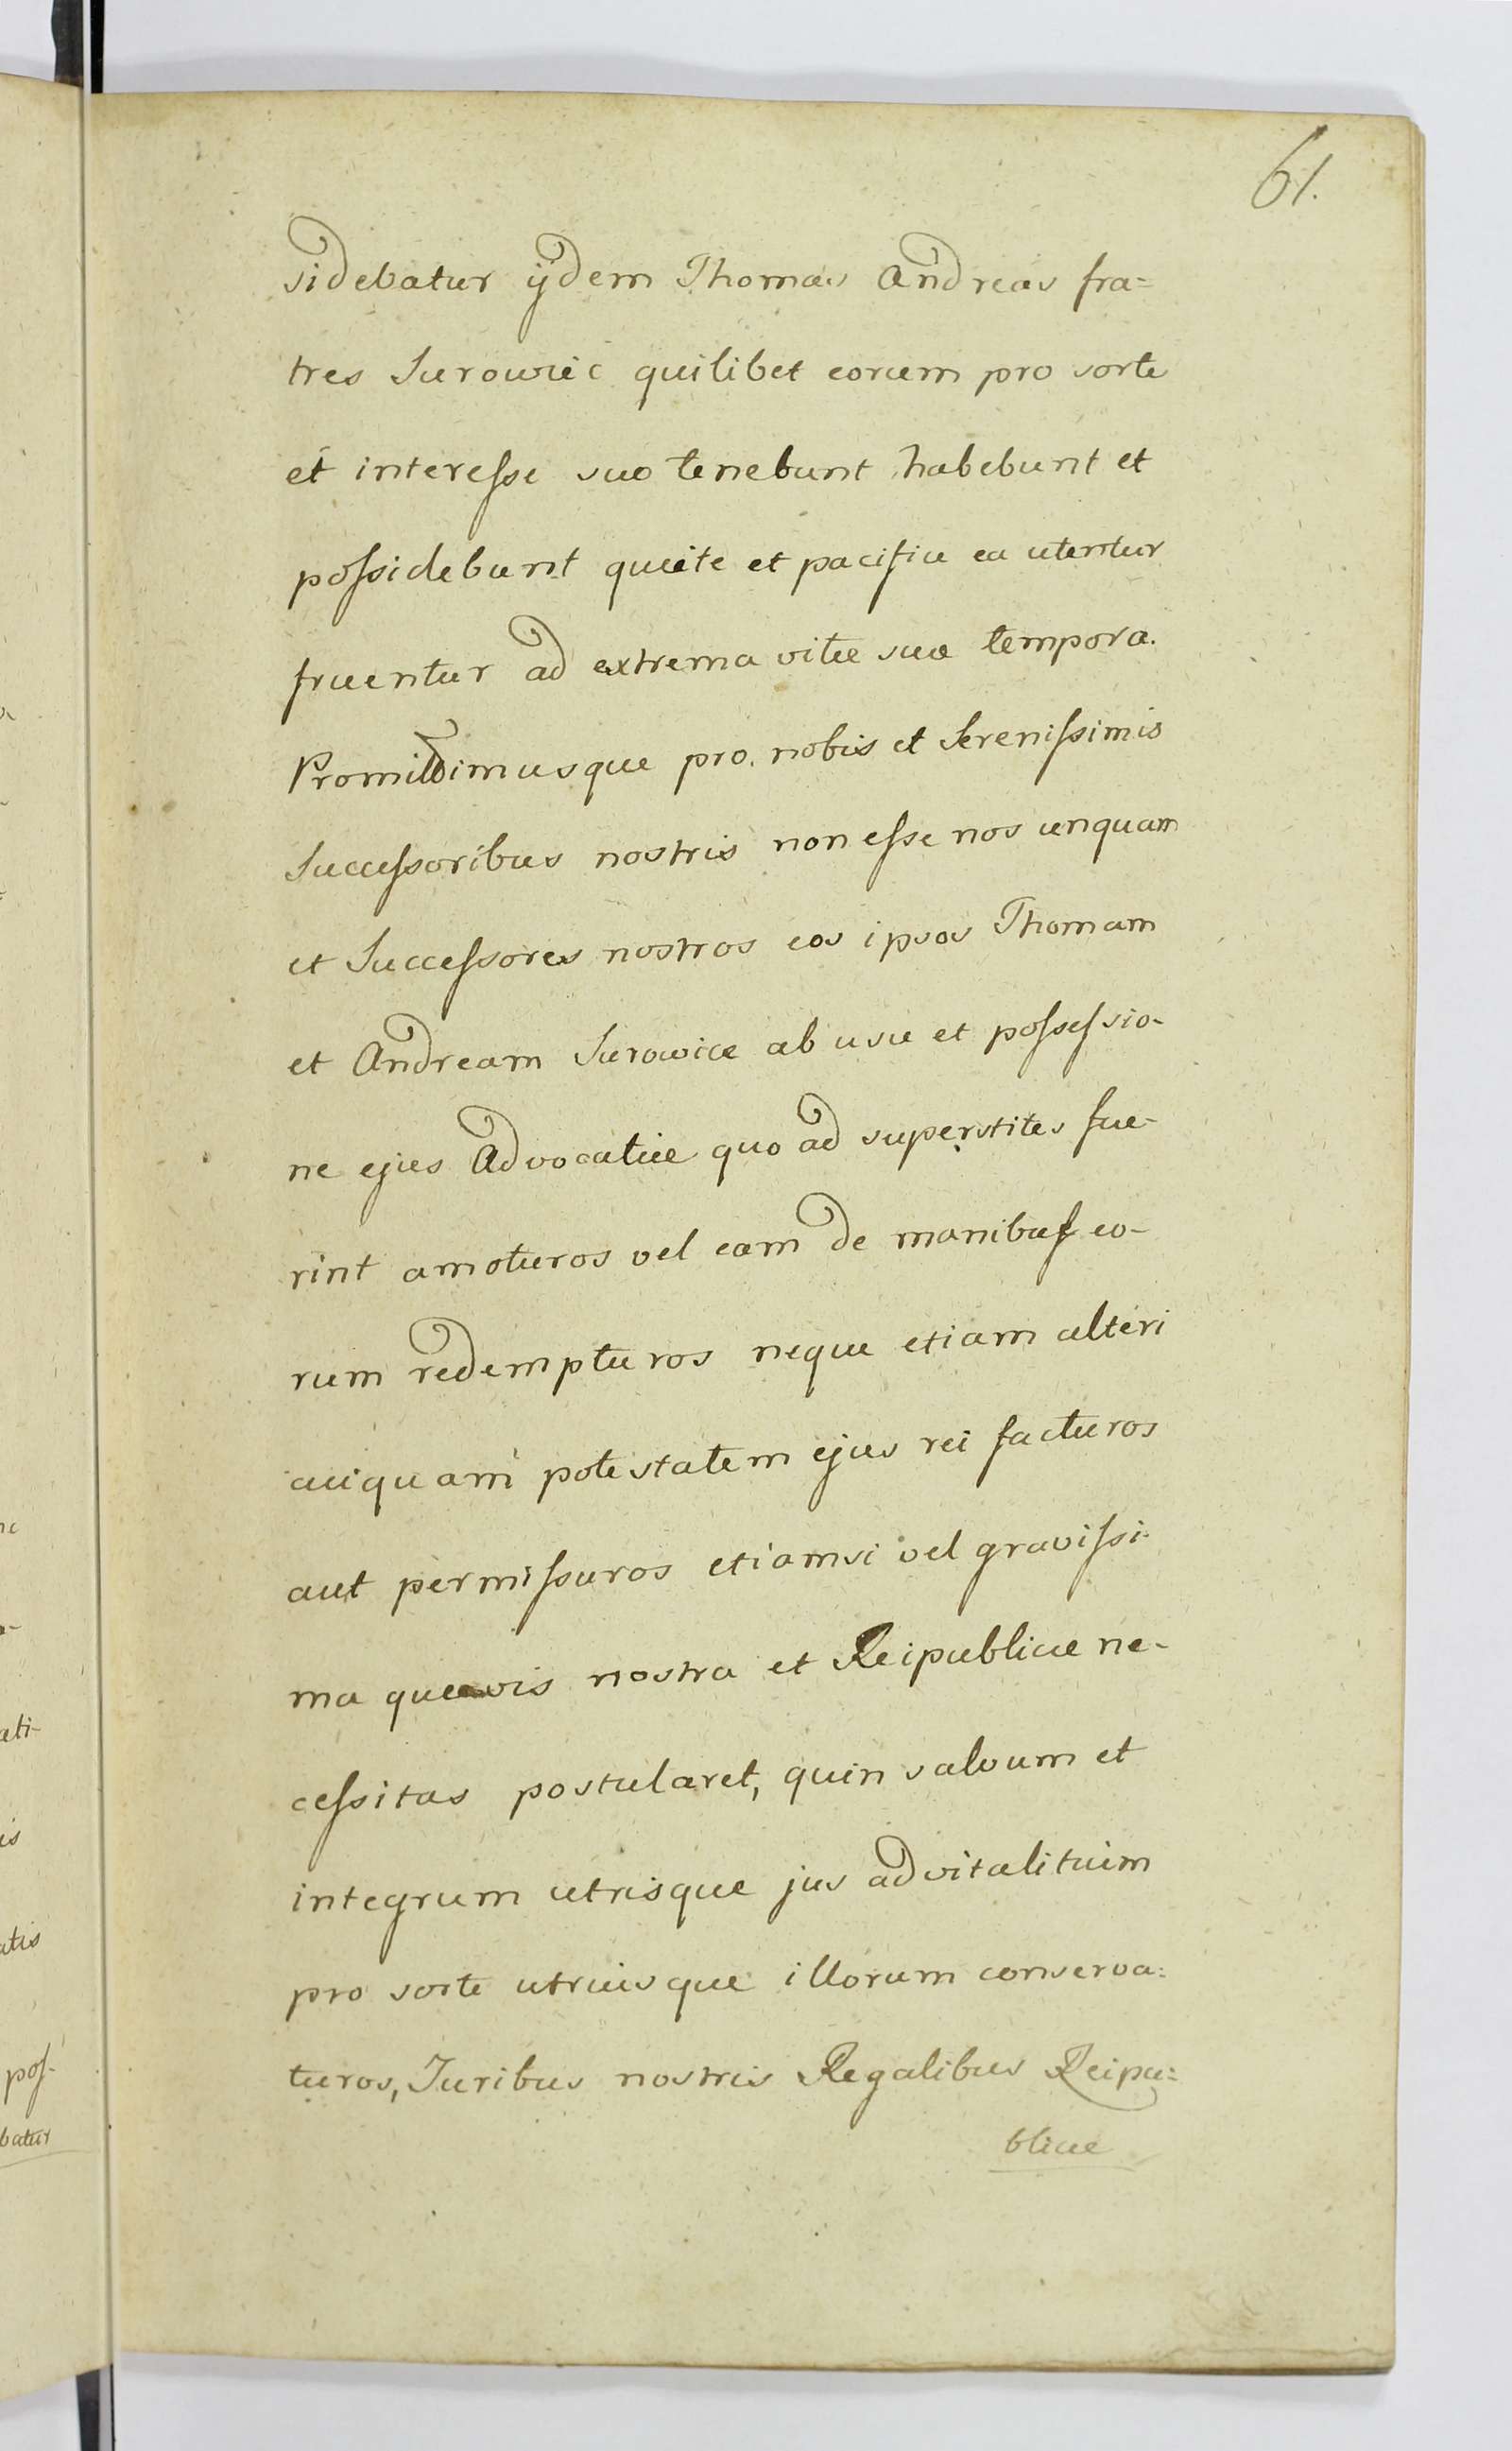 61.
sidebatur ijdem Thomas Andreas fra=
tres Surowiec quilibet eorum pro sorte
et interesse suo tenebunt habebunt et
possidebunt quiete et pacifice ea utentur
fruentur ad extrema vitæ suæ tempora.
Promittimusque pro. nobis et Serenissimis
Successoribus nostris non esse nos unquam
et Successores nostros eos ipsos Thomam
et Andream Surowice ab usu et possessio-
ne ejus Advocatiæ quoad superstites fue-
rint amoturos vel eam de manibus eo-
rum redempturos neque etiam alteri
cuiquam potestatem ejus rei facturos
aut permissuros etiamsi vel gravissi-
ma quævis nostra et Reipublicæ ne-
cessitas postularet, quin salvum et
integrum utrisque jus advitalitium
pro sorte utriusque illorum conserva=
turos, Juribus nostris Regalibus Reipu=
blicæ
ati-
is
atis
pos-
batur